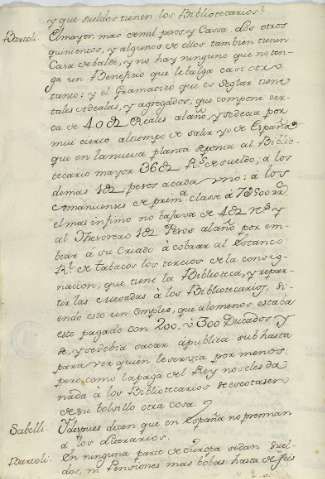 y que sueldos tienen los Bibliotecarios?
Bartoli. El mayor mas de mil pesos y Cassa: los otros
quinientos, y algunos de ellos tambien tienen
Casa de balde, y no hay ninguno que no ten-
ga un Beneficio que le balga casi otro
tanto: y el Gramatico que es Seglar tiene
tales adealas, y agregados, que compone cer-
ca de 40 Reales al año, y se decia por
muy cierto al tiempo de salir yo de España
que en la nueva planta al Biblio-
tecario mayor 36 Rs. de sueldo; a los
demas pesos a cada uno: a los
Escrivientes de prim.a clase a 7500 rs
el mas infimo no bajava de 4 rs. y
al Thesorero Pesos al año por em-
biar à su Criado à cobrar al Estanco
Rl. de tabacos los tercios de la consig-
nacion, que tiene la Biblioteca, y repar-
tir las mesadas à los Bibliotecarios. Si-
endo este un empleo, que alomenos estaba
este pagado con 200. ò 300 Ducados y
se debia sacar à publica subhasta
para ver quien le servia por menos
pero como la paga el Rey no les da
nada à los Bibliotecarios
de su bolsillo otra cosa.
Sabelli. Y despues dicen que en España no premian
à los Literarios.
Bartoli. En ninguna parte de Europa se dan Suel-
dos, ni Pensiones mas bobas: hasta de tres